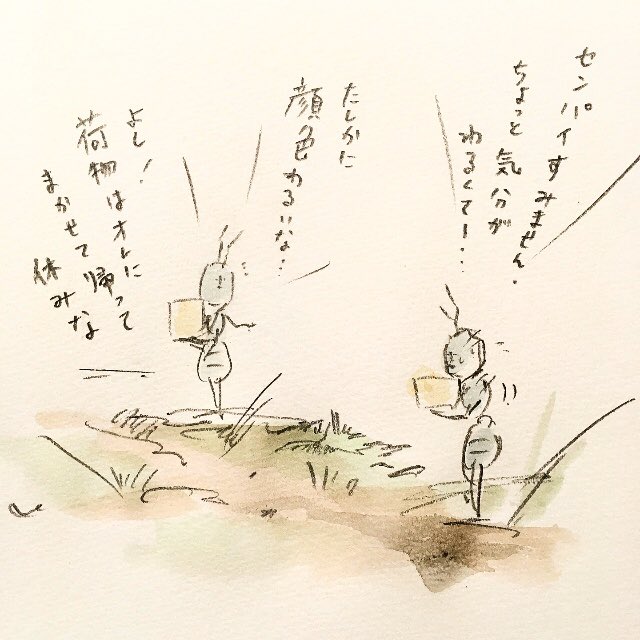 センパイすみません.
ちょっと気分が
わるくて〜・・
たしかに
顔色わるいな・・
よし!
荷物はオレに
まかせて帰って
休みな